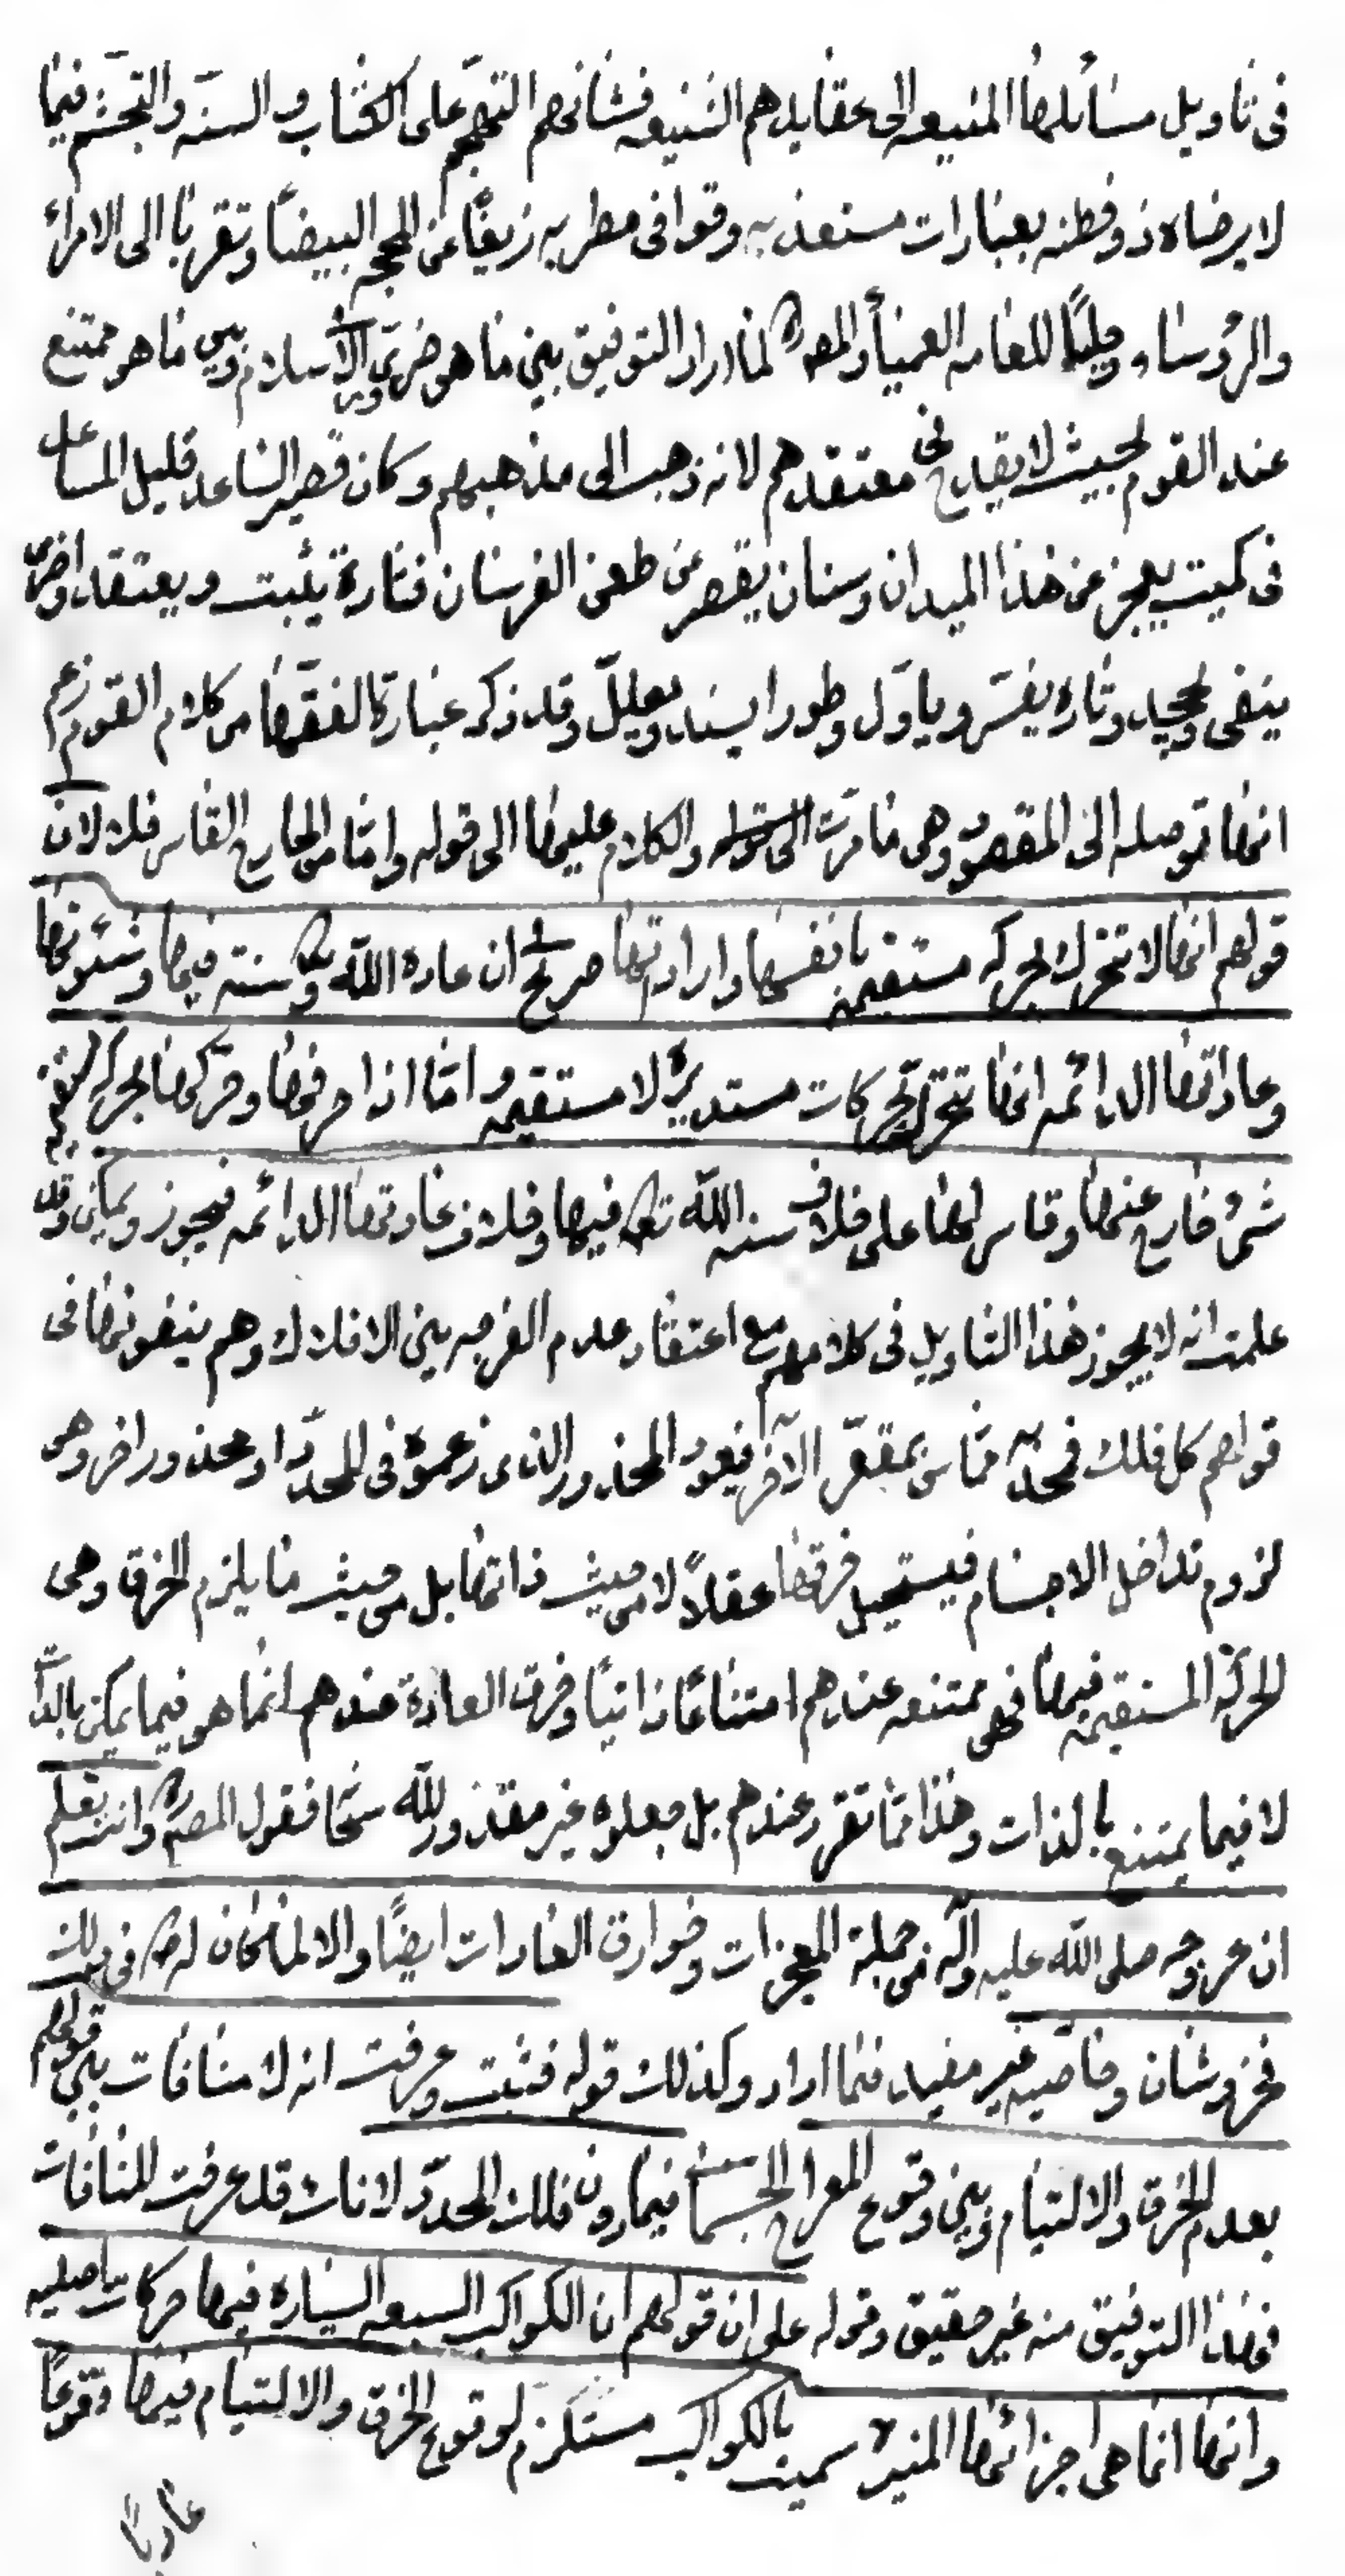 فى تاويل مسائلها المنيعه الى عقايدهم الشنيعه فشانهم التهجّم على الكتاب والسنّه والتجشّم فيما
لا يرضاه ذو فطنه بعبارات مستعذبه وقوافى مطربه زيغًا عن المحجه البيضاء وتقربًا الى الامراء
والرؤساء وميلًا للعامه العمياء والمص ره لما اراد التوفيق بين ما هو ضرورى الاسلام وبين ما هو ممتنع
عند القوم بحيث لا يقدح فى معتقدهم لانه ذهب الى مذهبهم وكان قصير الساعد قليل المساعد
فى كميت يعجز عن هذا الميدان وسنان يقصر عن طعن الفرسان فتارة يثبت ويعتقد واخرى
ينفى ويجحد وتاره يفسّر وياوّل وطورا يسند ويعلل وقد ذكر عبارة الفقها من كلام القوم زعم
انها توصله الى المقصود وهى ما مرّت والكلام عليها الى قوله وامّا من الخارج القاسر فلا لان
قولهم انها لا تتحرك بحركه مستقيمه بانفسها واراداتها صريح ان عاده الله وسنته فيها وشئونها
وعاداتها الدائمه انها تتحرك بحركات مستديره لا مستقيمه وامّا اذا خرقها وحركها بحركه مستقيمه
شئ خارج عنها وقاسر لها على خلاف سنه الله تع فيها وخلاف عادتها الدائمه فيجوز ويمكن وقد
علمت انه لا يجوز هذا التاويل فى كلامهم مع اعتقاد عدم الفرجه بين الافلاك وهم ينفونها فى
قولهم كل فلك محدّبه مماس بمقعّر الآخر فيعود المحذور الذى زعموه فى المحدّد او محذور اخر وهو
لزوم تداخل الاجسام فيستحيل خرقها عقلاً لا من حيث ذاتها بل من حيث ما يلزم الخرق وهى
الحركة المستقيمه فيها فهى ممتنعه عندهم امتناعًا ذاتيًا وخرق العادة عندهم انما هو فيما يمكن بالذات
لا فيما يمتنع بالذات وهذا ممّا تقرر عندهم بل جعلوه غير مقدور لله سبحا فقول المص ره وانت تعلم
ان عروجه صلى الله عليه وآله من جملة المعجزات وخوارق العادات ايضًا والا لما كان له ص فى ذلك
فخر وشان وخاصّيه غير مفيد فيما اراد وكذلك قوله فثبت وعرفت انه لا منافات بين قولهم
بعدم الخرق والالتيام وبين وقوع المعراج الجسمانى فيما دون فلك المحدّد لانك قد عرفت المنافات
فهذا التوفيق منه غير حقيق وقوله على ان قولهم ان الكواكب السبعه السياره فيها حركات اصليه
وانها انما هى اجزائها المنيره سميت بالكواكب مستلزم لوقوع الخرق والالتيام فيها وقوعًا
عاديًا